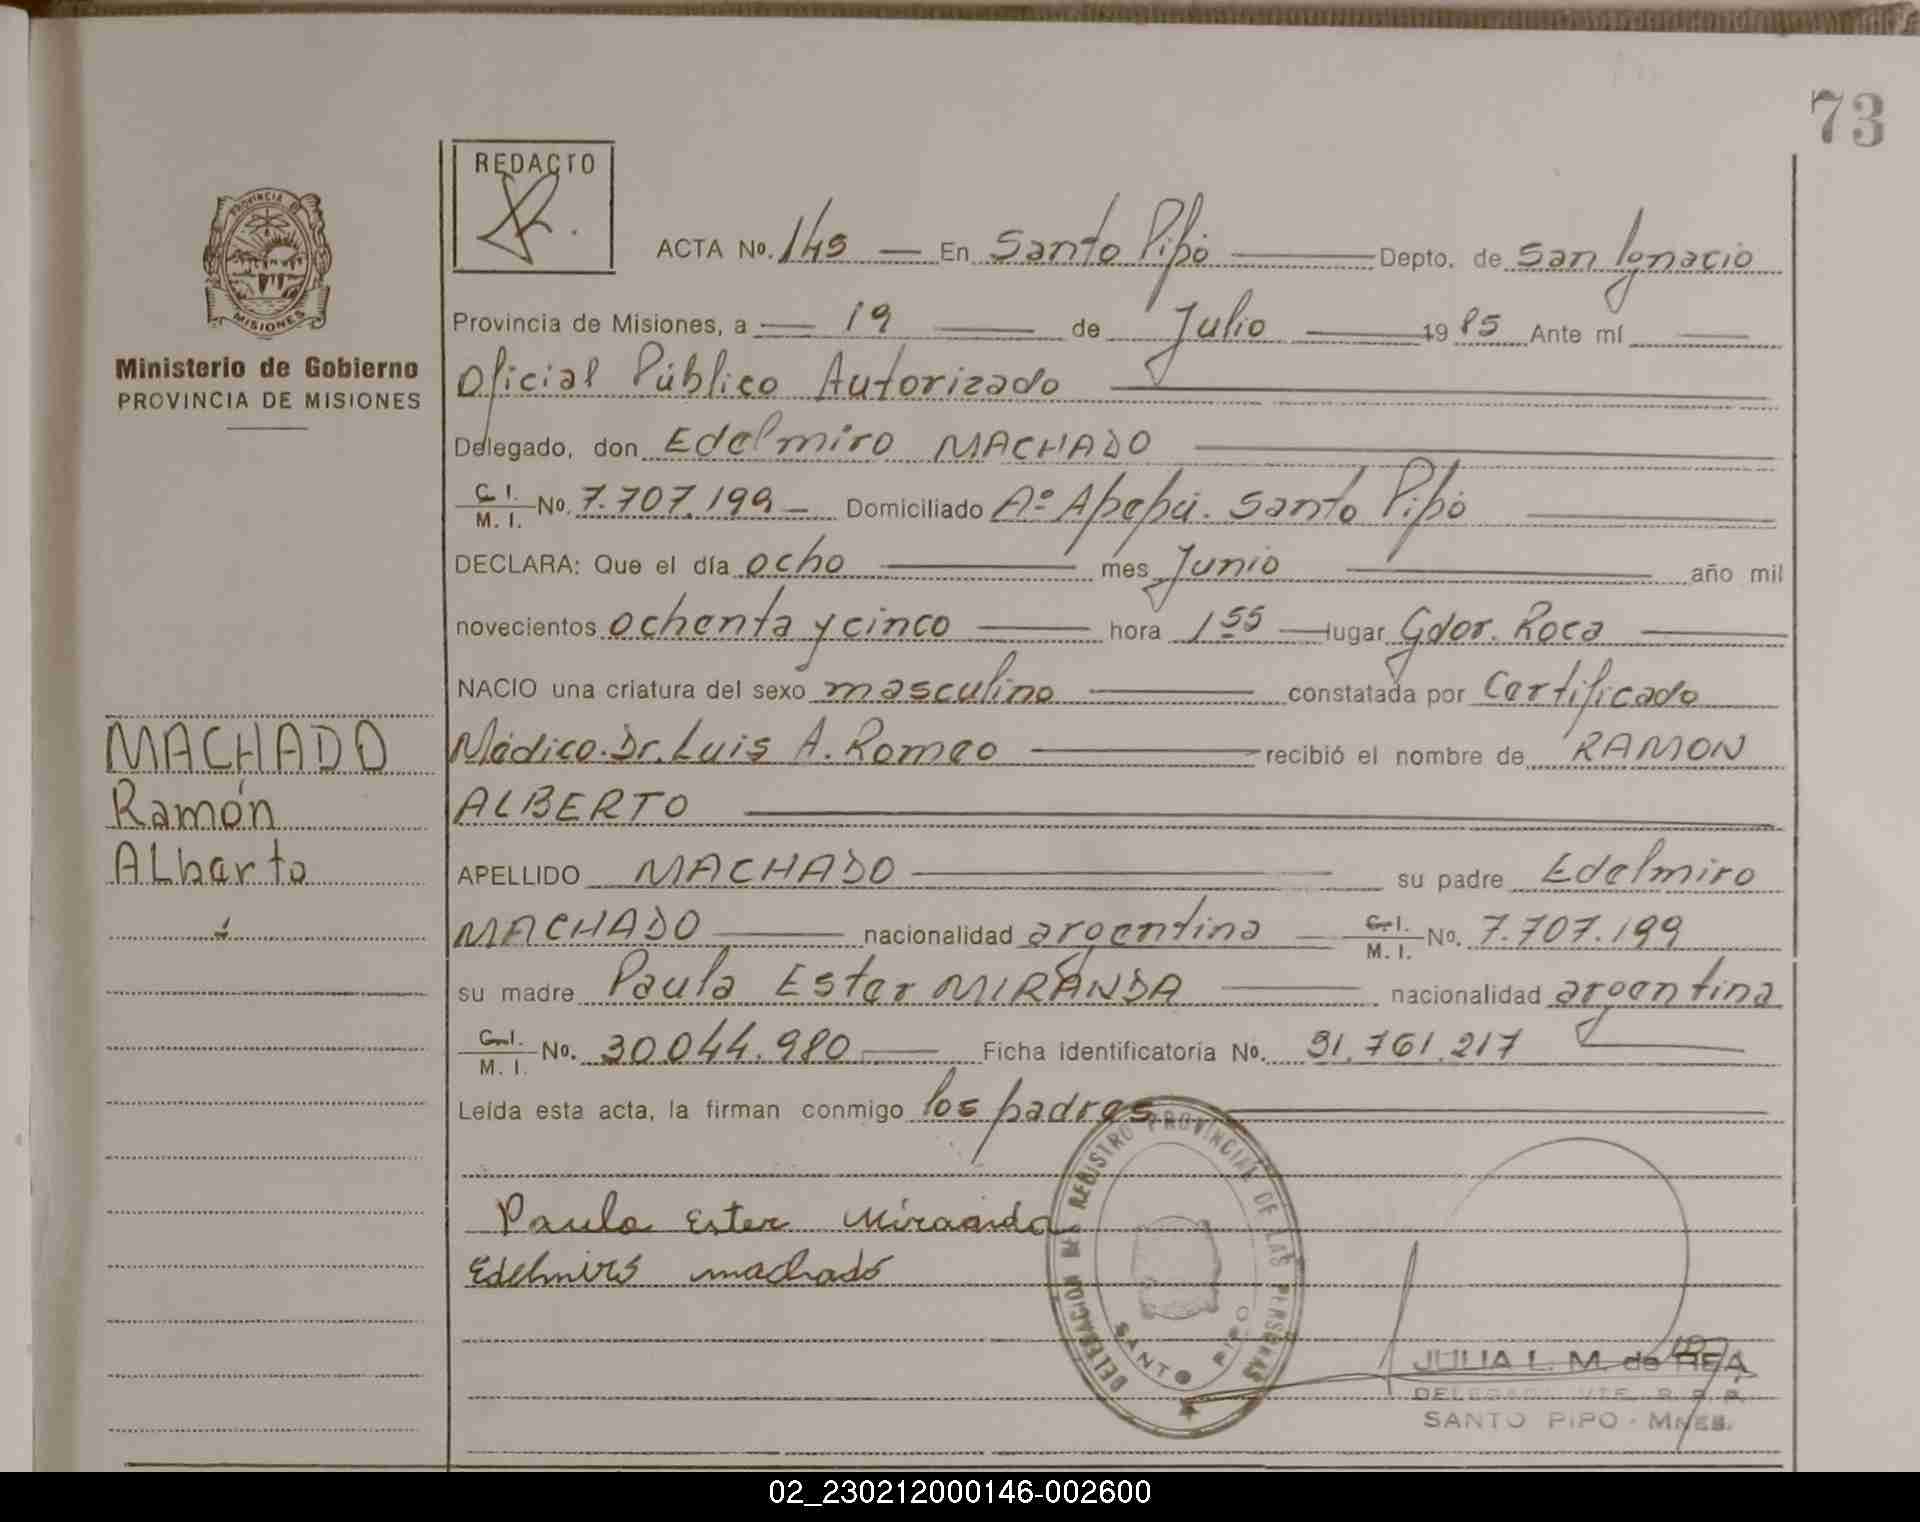 73
REDACTO
PROVINCIA DE
MISIONES
Ministerio de Gobierno
PROVINCIA DE MISIONES
ACTA No. 145 En Santo Pipó Depto. de San Ignacio
Provincia de Misiones, a 19 de Julio 1985 Ante mí
Oficial Público Autorizado
Delegado, don Edelmiro MACHADO
C.I. M.I. No. 7.707.199 Domiciliado Aº Apepú. Santo Pipó
DECLARA: Que el día ocho mes Junio año mil
novecientos ochenta y cinco hora 1 55 lugar Gdor. Roca
NACIO una criatura del sexo masculino constatada por Certificado
Médico. Dr. Luis A. Romeo recibió el nombre de RAMON
ALBERTO
APELLIDO MACHADO su padre Edelmiro
MACHADO nacionalidad argentina C.I. M.I. No. 7.707.199
su madre Paula Ester MIRANDA nacionalidad argentina
C.I. M.I. No. 30.044.980 Ficha identificatoria No. 31.761.217
Leída esta acta, la firman conmigo los padres
MACHADO
Ramón
ALberto
Paula Ester Miranda
Edelmiro machado
DELEGACION DEL REGISTRO PROVINCIAL DE LAS PERSONAS
SANTO PIPO
JULIA L. M. de REA
SANTO PIPO - MNES.
02_230212000146-002600